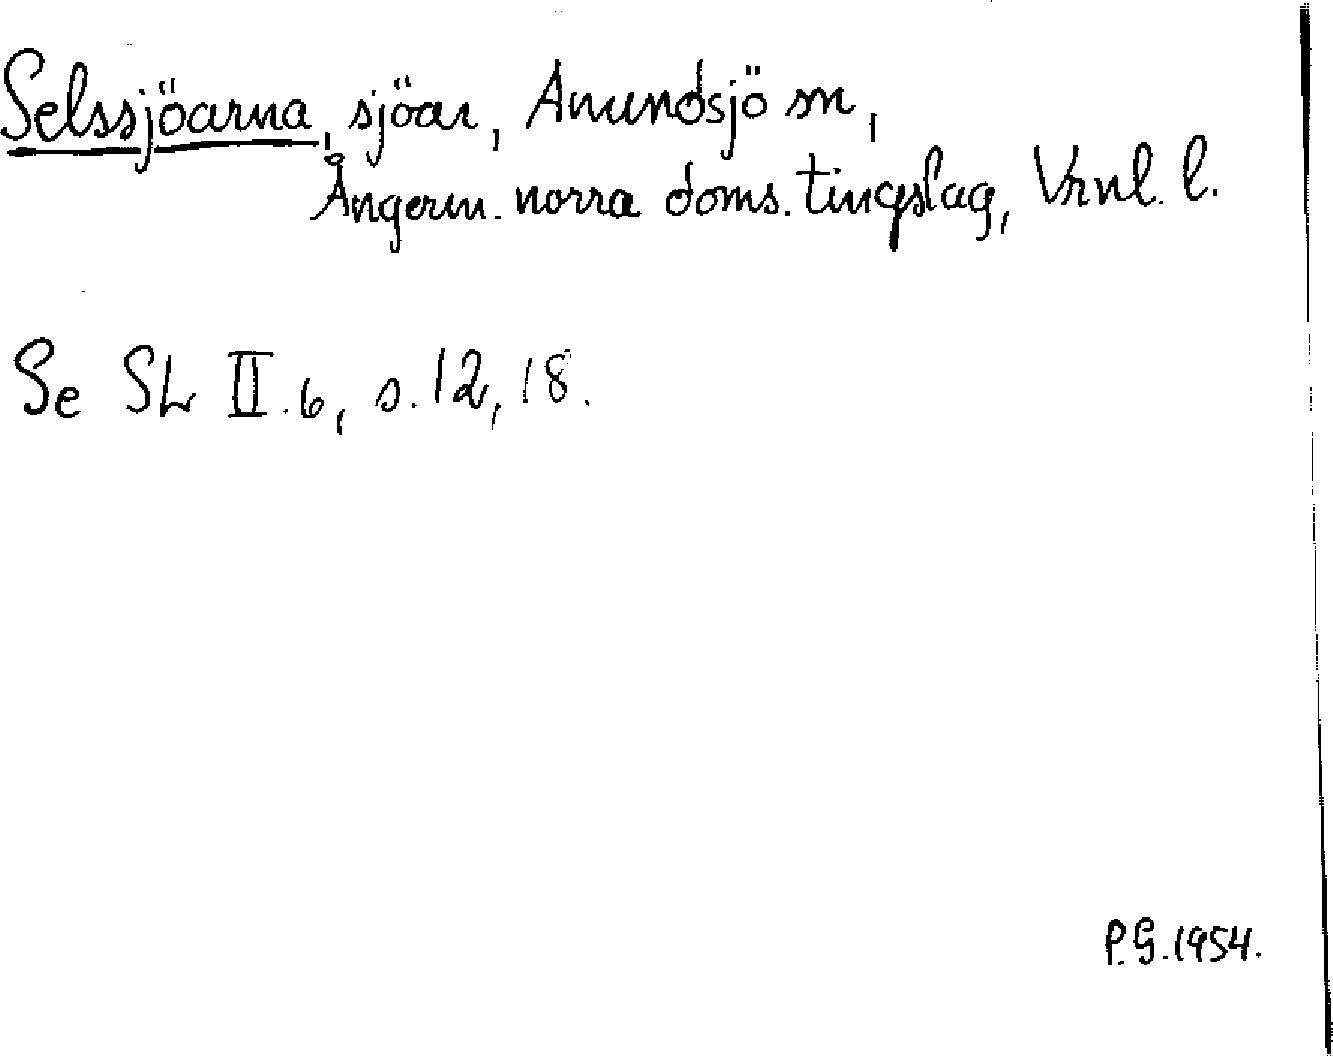 Selssjöarna, sjöar, Anundsjö sn,
Ångerm. norra doms. tingslag, Vrnl. l.
Se SL II.6, s. 12, 18.
P.G. 1954.